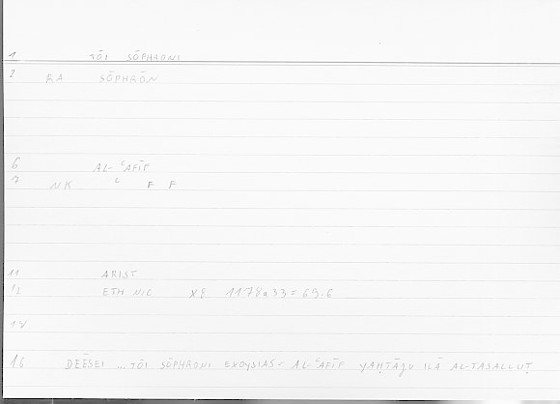 1 TŌI SŌPHRONI
2 RA SŌPHRŌN
6 AL-ʿAFĪF
7 NK ʿ F F
11 ARIST
12 ETH NIC 1178a33 = 69.6
16 DEĒSEI ... TŌI SŌPHRONI EXOYSIAS - AL-ʿAFĪF YAḤTĀǦU ILĀ AL-TASALLUṬ